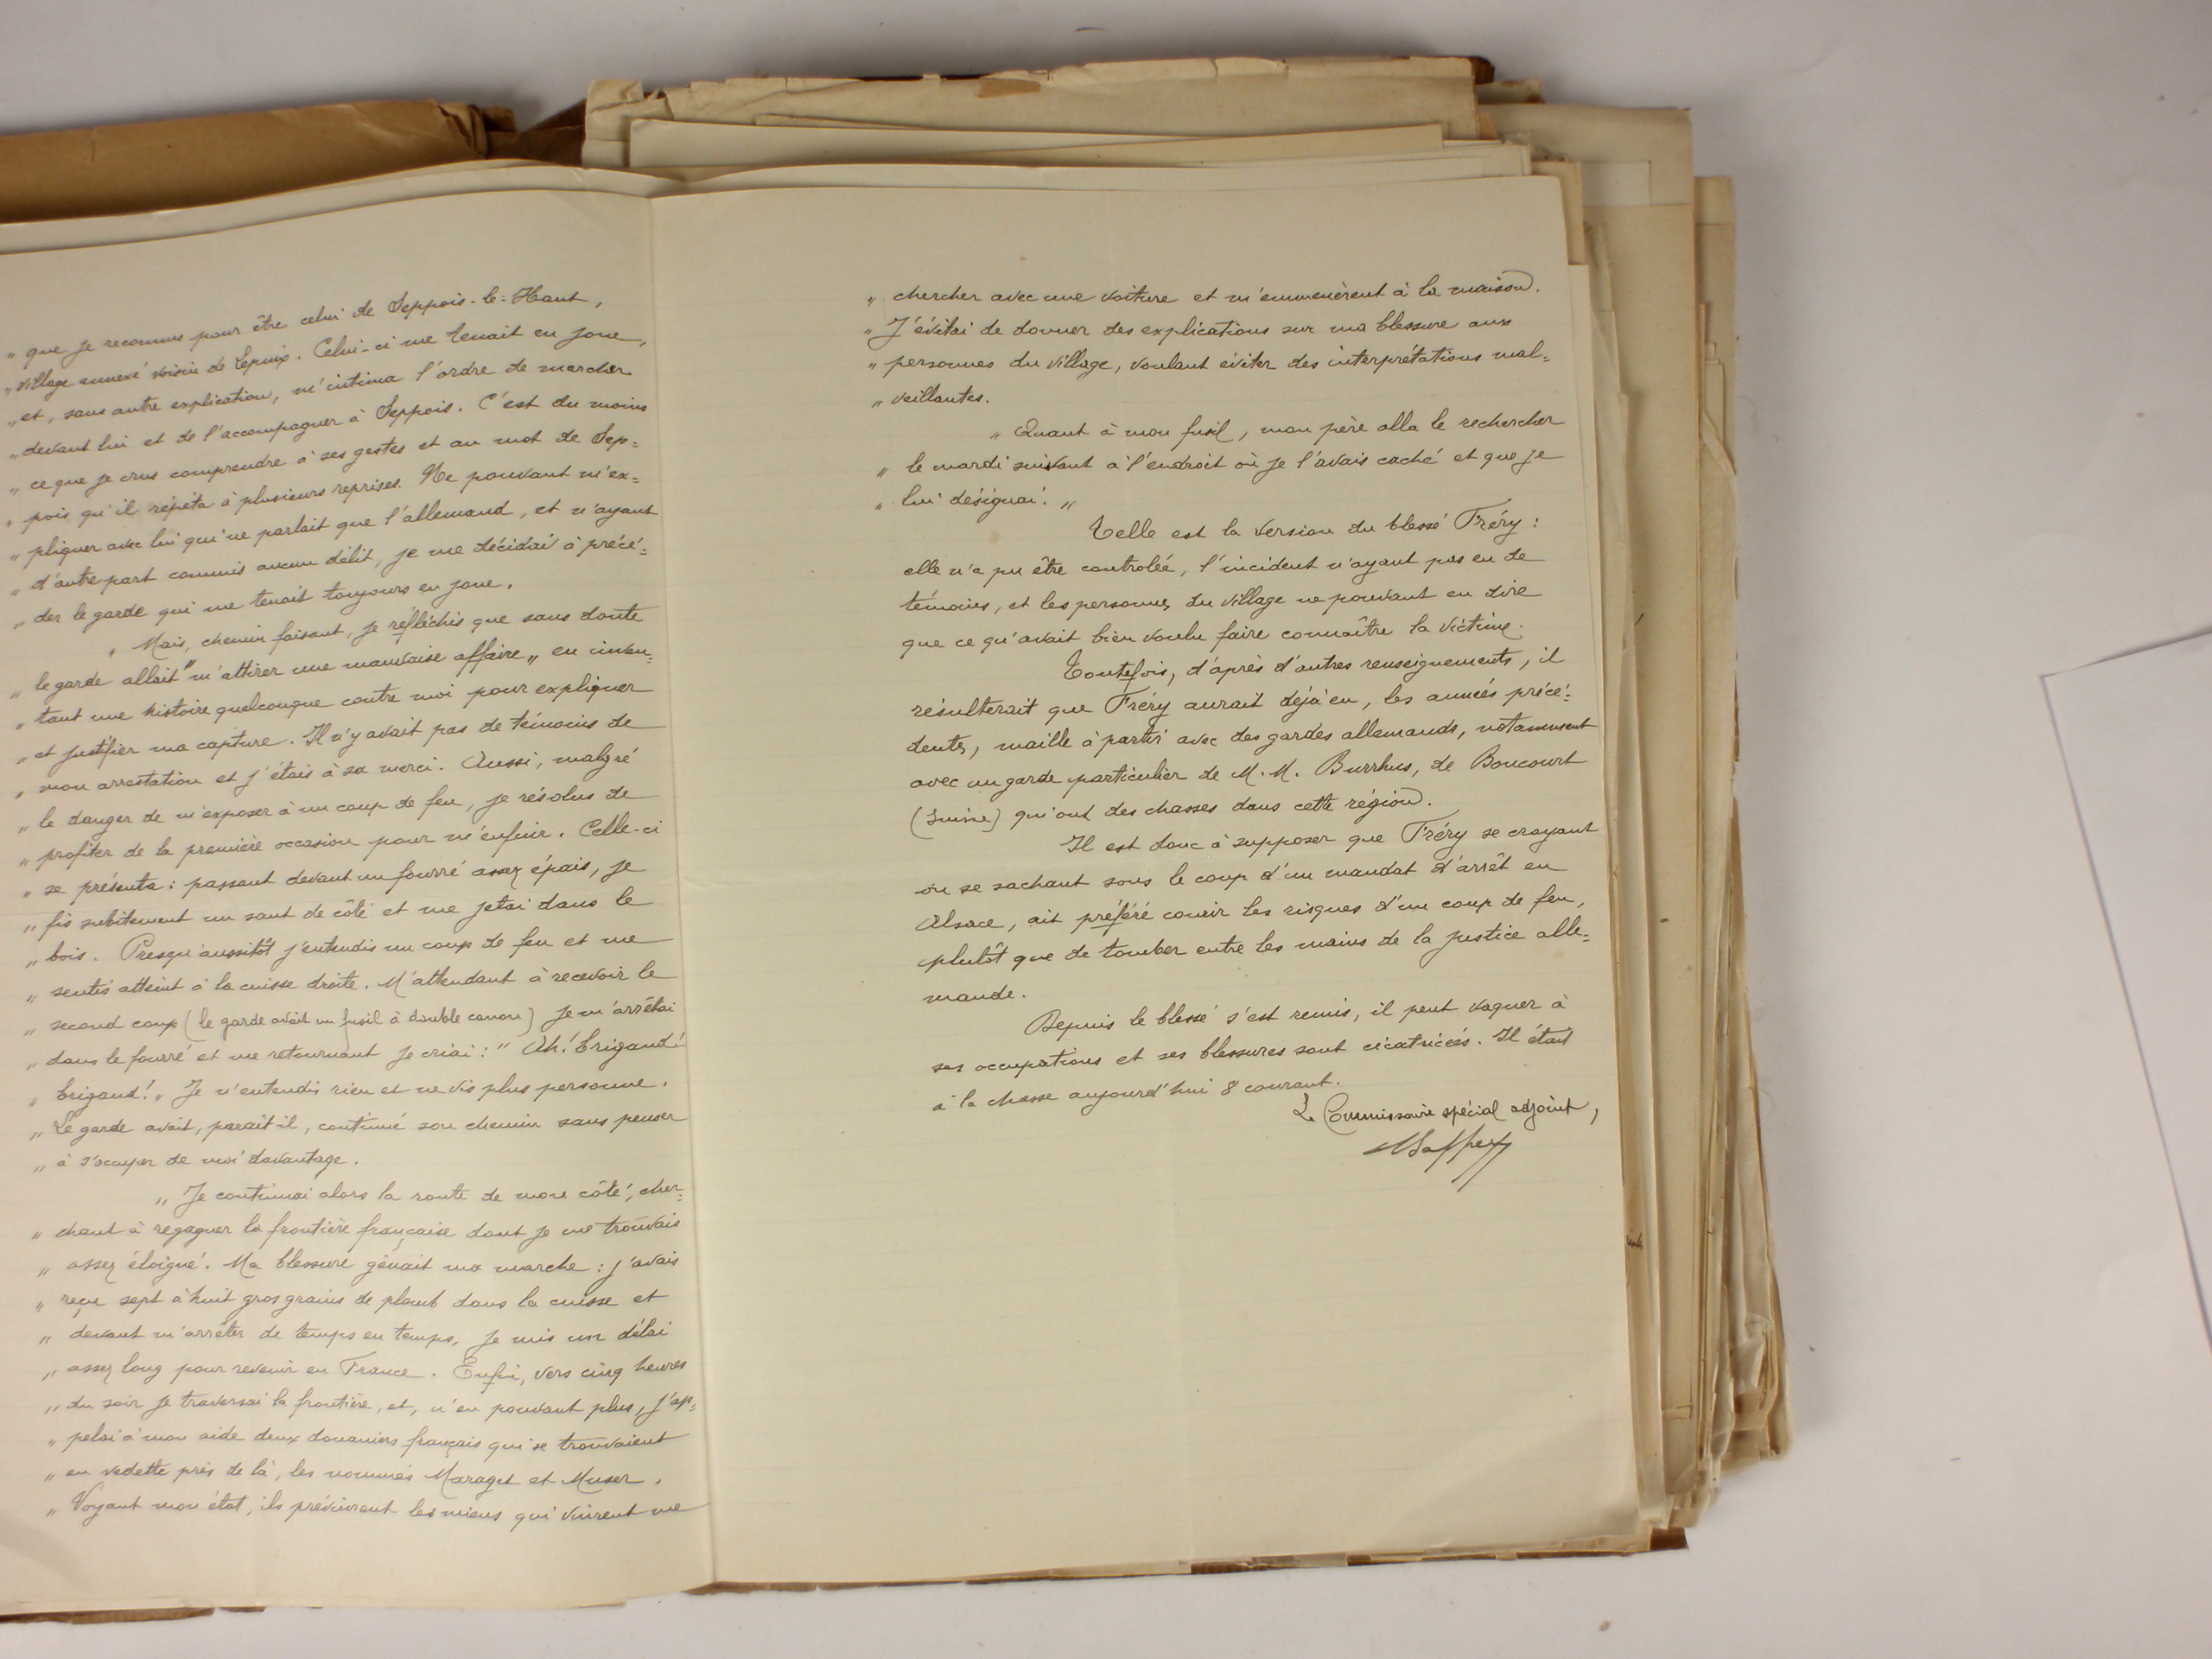 „ que je reconnus pour être celui de Seppois-le-Haut,
„ village annexé voisin de Lepuix. Celui-ci me tenait en joue,
„ et, sans autre explication, m'intima l'ordre de marcher
„ devant lui et de l'accompagner à Seppois. C'est du moins
„ ce que je crus comprendre à ses gestes et au mot de Sep=
„ pois qu'il répéta à plusieurs reprises. Ne pouvant m'ex=
„ pliquer avec lui qui ne parlait que l'allemand, et n'ayant
„ d'autre part commis aucun délit, je me décidai à précé=
„ der le garde qui me tenait toujours en joue.
„ Mais, chemin faisant, je réfléchis que sans doute
„ le garde allait "m'attirer une mauvaise affaire„ en inven=
„ tant une histoire quelconque contre moi pour expliquer
„ et justifier ma capture. Il n'y avait pas de témoins de
„ mon arrestation et j'étais à sa merci. Aussi, malgré
„ le danger de m'exposer à un coup de feu, je résolus de
„ profiter de la première occasion pour m'enfuir. Celle-ci
„ se présenta: passant devant un fourré assez épais, je
„ fis subitement un saut de côté et me jetai dans le
„ bois. Presqu'aussitôt j'entendis un coup de feu et me
„ sentis atteint à la cuisse droite. M'attendant à recevoir le
„ second coup (le garde avait un fusil à double canon) je m'arrêtai
„ dans le fourré et me retournant je criai: " Ah! brigand!
„ brigand!„ Je n'entendis rien et ne vis plus personne.
„ Le garde avait, paraît-il, continué son chemin sans penser
„ à s'occuper de moi davantage.
„ Je continuai alors la route de mon côté, cher=
„ chant à regagner la frontière française dont je me trouvais
„ assez éloigné. Ma blessure gênait ma marche: j'avais
„ reçu sept à huit gros grains de plomb dans la cuisse et
„ devant m'arrêter de temps en temps, je mis un délai
„ assez long pour revenir en France. Enfin, vers cinq heures
„ du soir je traversai la frontière, et, n'en pouvant plus, j'ap=
„ pelai à mon aide deux douaniers français qui se trouvaient
„ en vedette près de là, les nommés Maraget et Muser.
„ Voyant mon état, ils prévinrent les miens qui vinrent me
„ chercher avec une voiture et m'emmenèrent à la maison.
„ J'évitai de donner des explications sur ma blessure aux
„ personnes du village, voulant éviter des interprétations mal=
„ veillantes.
„ Quant à mon fusil, mon père alla le rechercher
„ le mardi suivant à l'endroit où je l'avais caché et que je
„ lui désignai. „
Telle est la version du blessé Fréry:
elle n'a pu être controlée, l'incident n'ayant pas eu de
témoins, et les personnes du village ne pouvant en dire
que ce qu'avait bien voulu faire connaître la victime.
Toutefois, d'après d'autres renseignements, il
résulterait que Fréry aurait déjà eu, les années précé=
dentes, maille à partir avec des gardes allemands, notamment
avec un garde particulier de M.M. Burrhus, de Boncourt
(Suisse) qui ont des chasses dans cette région.
Il est donc à supposer que Fréry se croyant
ou se sachant sous le coup d'un mandat d'arrêt en
Alsace, ait préféré courir les risques d'un coup de feu,
plutôt que de tomber entre les mains de la justice alle=
mande.
Depuis le blessé s'est remis, il peut vaquer à
ses occupations et ses blessures sont cicatricées. Il était
à la chasse aujourd'hui 8 courant.
Le Commissaire spécial adjoint,